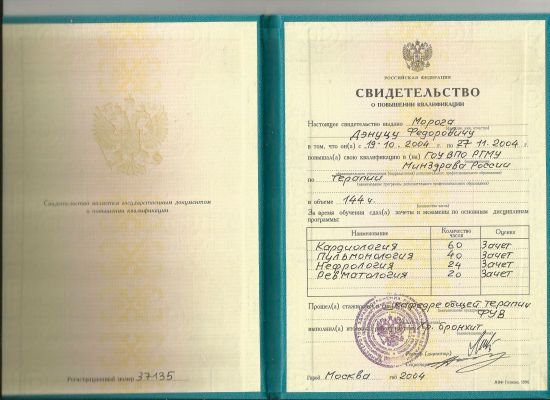 Свидетельство является государственным документом
о повышении квалификации
Регистрационный номер 37135
РОССИЙСКАЯ ФЕДЕРАЦИЯ
СВИДЕТЕЛЬСТВО
О ПОВЫШЕНИИ КВАЛИФИКАЦИИ
Настоящее свидетельство выдано Морога
Дэнуцу Федоровичу
в том, что он(а) с 19.10.2004 г. по 27.11.2004 г.
повысил(а) свою квалификацию в (на) ГОУ ВПО РГМУ
Минздрава России
по Терапии
в объеме 144 ч.
За время обучения сдал(а) зачеты и экзамены по основным дисциплинам
программы:
Наименование Количество часов Оценка
Кардиология 60 Зачет
Пульмонология 40 Зачет
Нефрология 24 Зачет
Ревматология 20 Зачет
Прошел(а) кафедре общей терапии
ФУВ
выполнил(а) Хр. бронхит
Ректор (директор)
Секретарь
Город Москва 2004